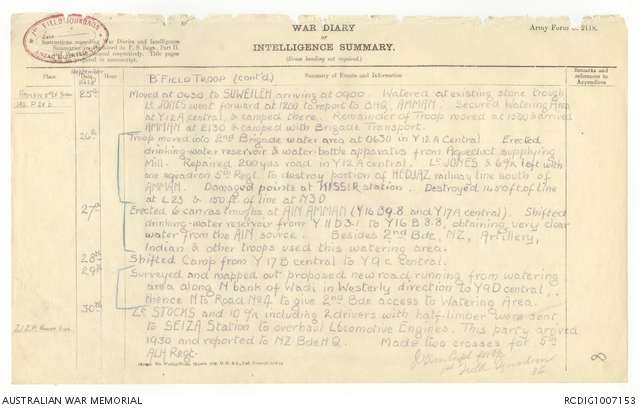 WAR DIARY
or
INTELLIGENCE SUMMARY.
(Erase heading not required).
Army Form C. 2118.
Instructions regarding War Diaries and Intelligence
Summaries are contained in F. S. Regs., Part II.
Title pages
Place
Hour
Summary of Events and Information
Remarks and
references to
Appendices
September
1918
B FIELD TROOP (cont'd)
25th Moved at 0630 to SUWEILEH arriving at 0900. Watered at existing stone trough
Lt JONES went forward at 1200 to report to BHQ, AMMAN. Secured Watering Area
at Y12A central, & camped there. Remainder of Troop moved at arrived
AMMAN at 2130 & camped with Brigade Transport.
26th Troop moved into 2nd Brigade water area at 0630 in Y12A Central. Erected
drinking-water reservoir & water-bottle apparatus from Aqueduct supplying
Mill. Repaired 200 yds road in Y12A central. Lt JONES & left with
one squadron 5th Regt. to destroy portion of HEDJAZ railway line south of
AMMAN. Damaged points at KISSIR station. Destroyed ft of Line
at L23 & 150 ft. of line at
27th Erected 6 canvas troughs at AIN AMMAN (Y16B 9.8 and Y17A central). Shifted
drinking-water reservoir from Y11D 3.1 to Y16B 8.8, obtaining very clear
water from the AIN source. Besides 2nd Bde, NZ, Artillery,
Indian & other troops used this watering area.
28th Shifted Camp from Y17B central to Y9c Central.
29th Surveyed and mapped out proposed new road, running from watering
area along N bank of Wadi in Westerly direction to Y9D central
thence N to Road No4 to give 2nd Bde access to Watering Area.
30th Lt STOCKS and 10 including 2 drivers with half-limber were sent
to SEIZA Station to overhaul Locomotive Engines. This party arrived
1930 and reported to NZ Bde HQ. Made two crosses for 5th
ALH Regt.
8
AUSTRALIAN WAR MEMORIAL
RCDIG1007153